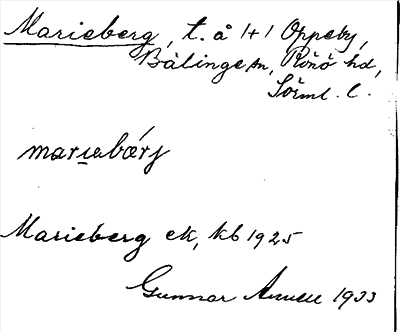 Marieberg, t. å 1+1 Oppeby,
Bälinge sn, Rönö hd,
Sörml. l.
mariabærj
Marieberg ek, kb 1925
Gunnar 1933